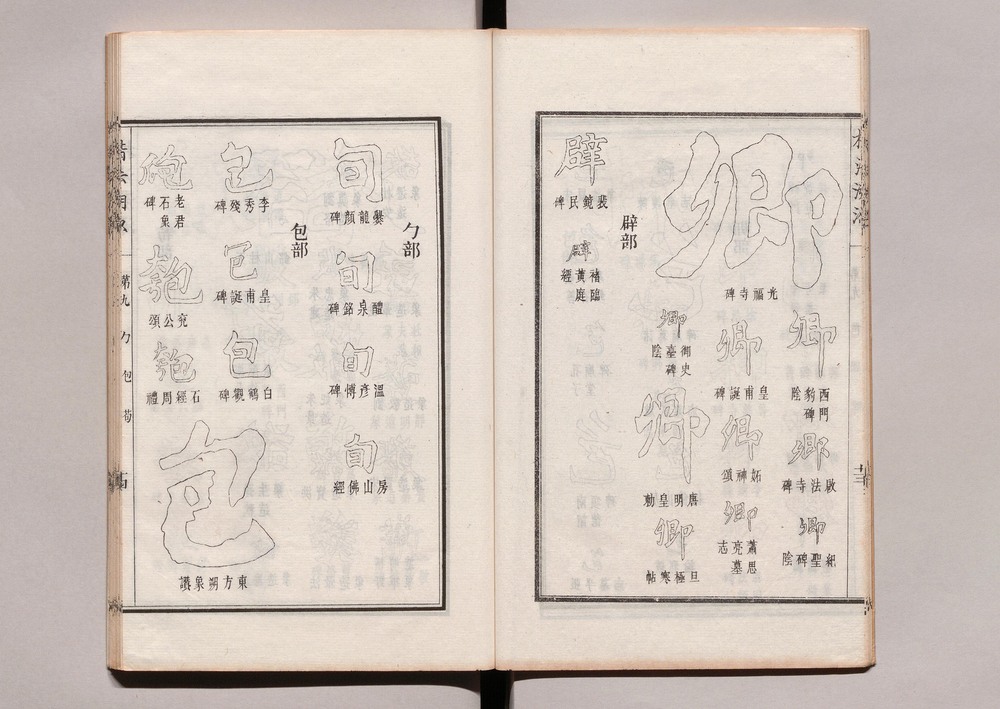 卿
光福寺碑
卿
西門豹碑陰
卿
啟法寺碑
卿
紀聖碑陰
卿
皇甫誕碑
卿
妬神頌
卿
蕭思亮墓志
卿
御史臺碑陰
卿
唐明皇勅
卿
旦極寒帖
辟部
辟
裴鏡民碑
辟
褚臨黃庭經
勹部
旬
爨龍顏碑
旬
醴泉銘碑
旬
溫彥博碑
旬
房山佛經
包部
包
李秀殘碑
包
皇甫誕碑
包
白鶴觀碑
老君石象碑
兗公頌
石經周禮
包
東方朔象讚
第九 勹 包 茍